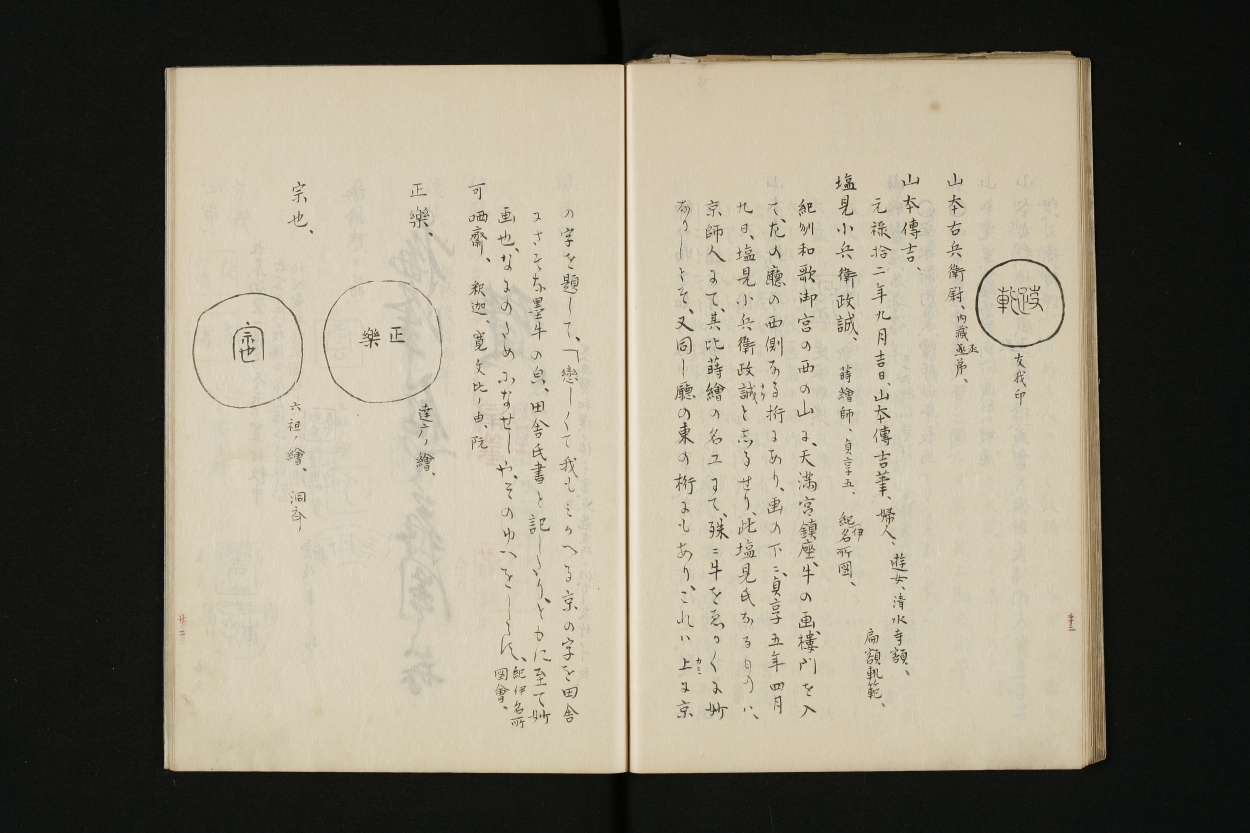 友我印
山本右兵衛尉、内藏丞弟、
山本傳吉、
元禄拾二年九月吉日、山本傳吉筆、婦人、遊女、清水寺額、
扁額軌範、
塩見小兵衛政誠、蒔繪師、貞享五、紀伊名所図、
紀州和歌御宮の西の山に、天満宮鎮座、牛の画樓門を入
て、左の廳の西側なる桁にあり、画の下ニ、貞享五年四月
九日、塩見小兵衛政誠としるせり、此塩見氏なるものハ、
京師人にて、其比蒔繪の名工にて、殊ニ牛をゑかくに妙
なりしとそ、又同し廳の東の桁にもあり、これハ上に京
の字を題して、「戀しくて我もミかへる京の字を田舎
墨牛の 田舎氏書と記し 至て妙
画也、 紀伊名所
図會、
可哂齋、釈迦、寛文比ノ由、阮
正樂、
正
樂
達广ノ繪、
宗也、
宗也
六祖ノ繪、洞斎ノ